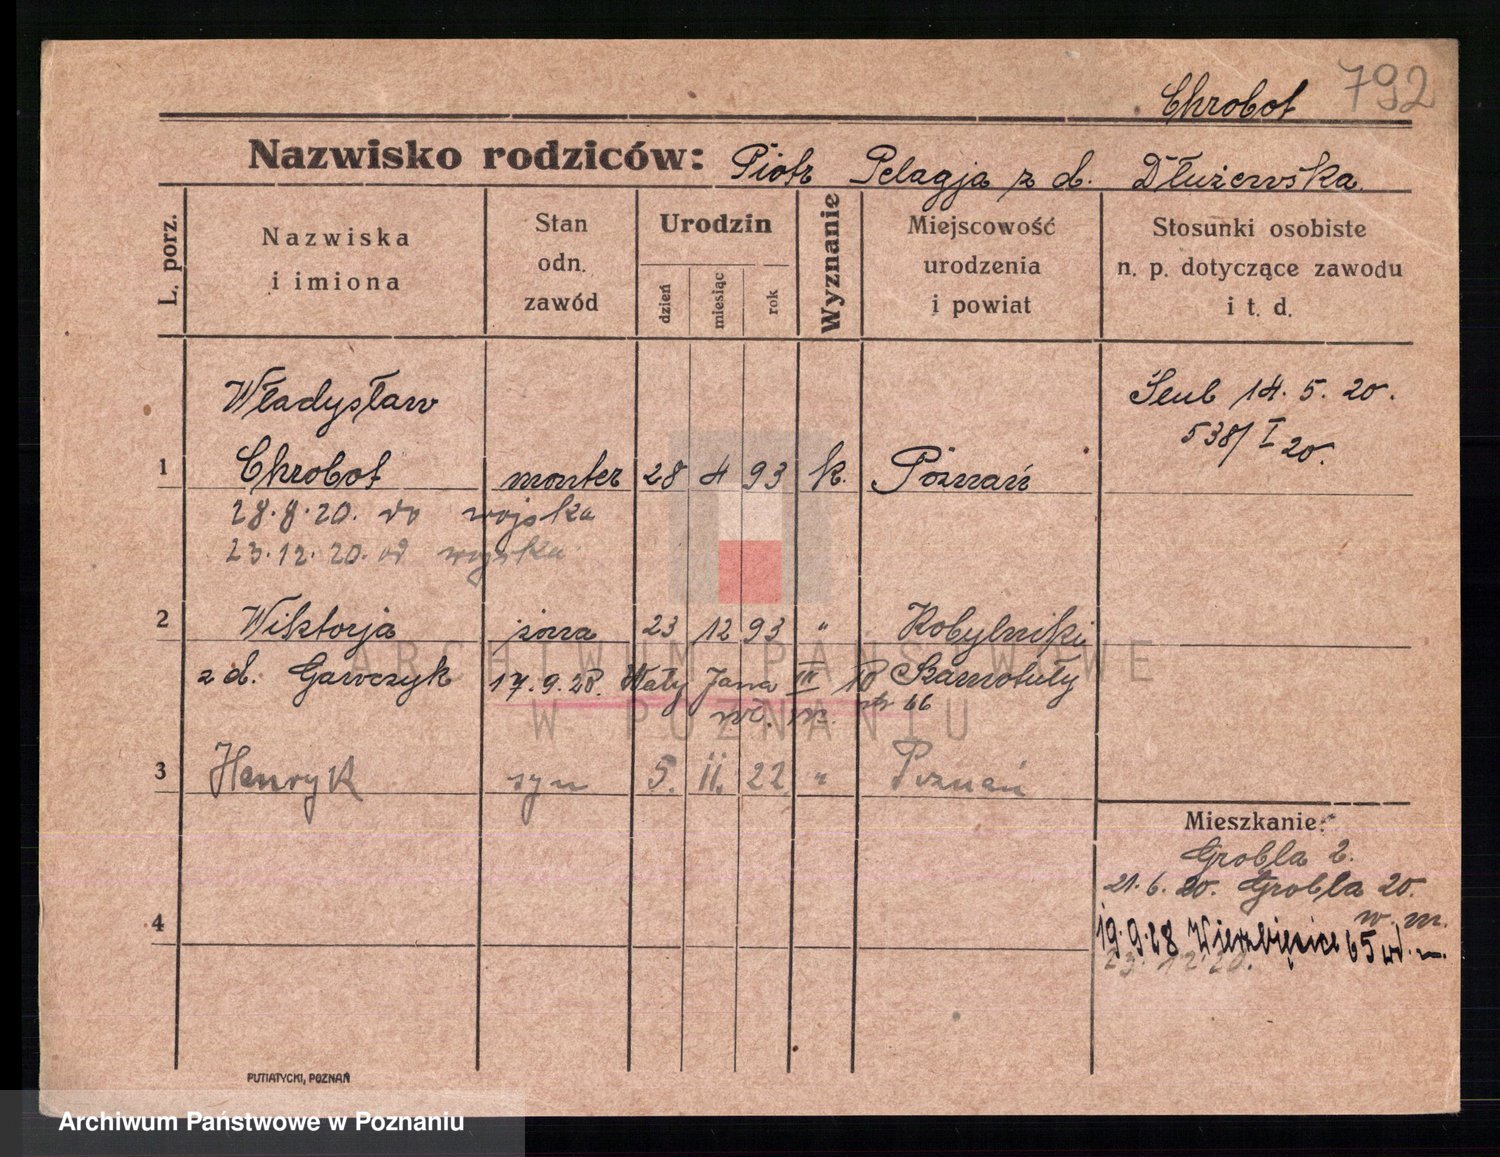 792
Chrobot
Nazwisko rodziców: Piotr Pelagja z d. Dłużewska
L. porz.
Nazwiska i imiona
Stan odn. zawód
Urodzin
dzień
miesiąc
rok
Wyznanie
Miejscowość urodzenia i powiat
Stosunki osobiste n. p. dotyczące zawodu i t. d.
Władysław
Ślub 14. 5. 20.
538/I 20.
1 Chrobot monter 28 4 93 k. Poznań
28.8.20. do wojska
23.12.20. od wojska
2 Wiktorja żona 23 12 93 " Kobylniki
z d. Gawczyk 17.9.28. Wały Jana III 10 Szamotuły
w. m. 66
3 Henryk syn 5. II. 22 " Poznań
Mieszkanie:
Grobla 2.
21.6.20. Grobla 20.
w. m.
4
19.9.28 Wierzbięcice 65 w. m.
23.12.20.
PUTIATYCKI, POZNAŃ
ARCHIWUM PAŃSTWOWE
W POZNANIU
Archiwum Państwowe w Poznaniu